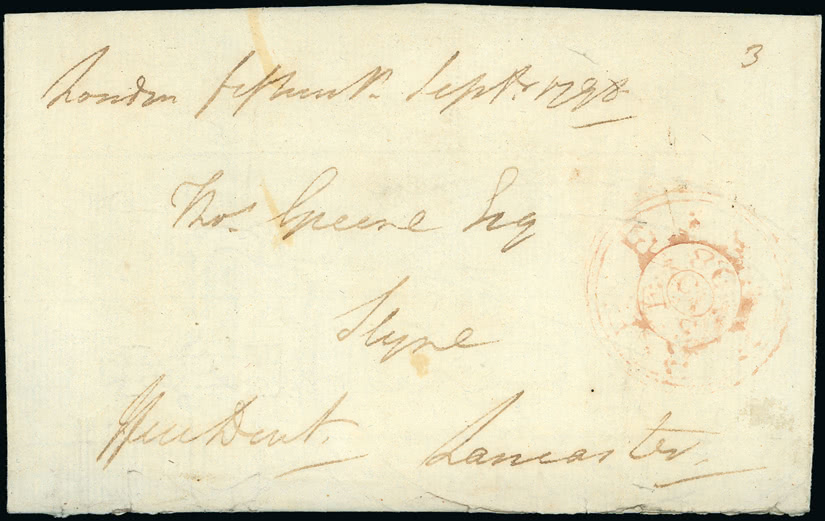 3
London fifteenth Septr. 1798
Thos. Greene Esq
Slyne
Lancaster